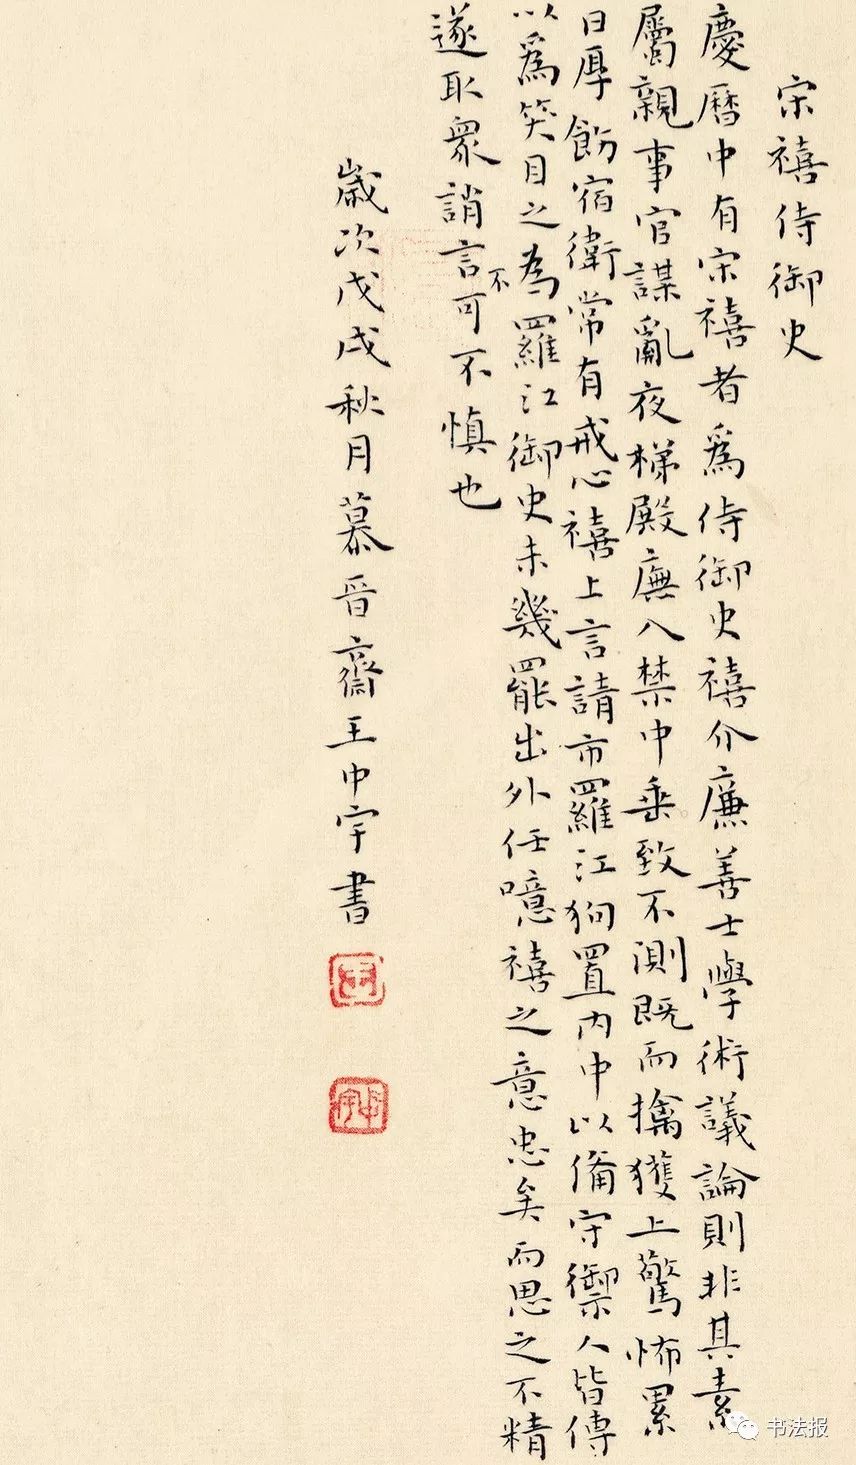 宋禧侍御史
慶曆中有宋禧者爲侍御史禧介廉善士學術議論則非其素
屬親事官謀亂夜梯殿廡入禁中垂致不測既而擒獲上驚怖累
日厚飭宿衛常有戒心禧上言請市羅江狗置内中以備守禦人皆傳
以爲笑目之為羅江御史未幾罷出外任噫禧之意忠矣而思之不精
遂取衆誚言可不慎也
不
歲次戊戌秋月慕晉齋王中宇書
书法报